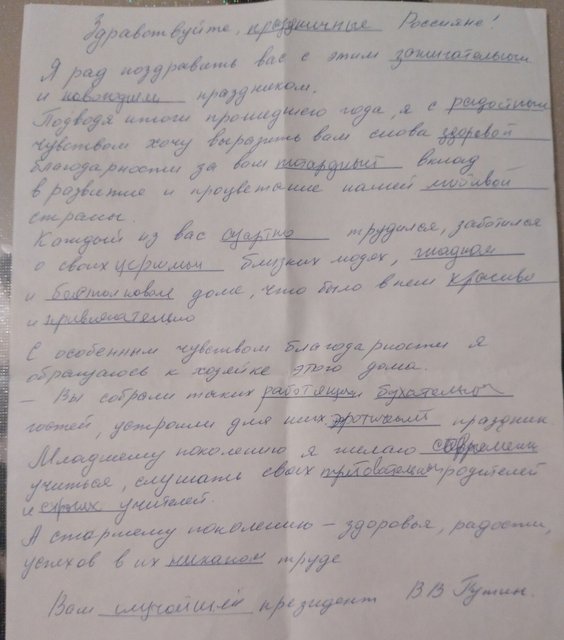 Здравствуйте, праздничные Россияне!
Я рад поздравить вас с этим зажигательным
и новогодним праздником.
Подводя итоги прошедшего года, я с
чувством хочу выразить вам слова здоровой
благодарности за вам вклад
в развитие и процветание нашей любивой
страны.
Каждый из вас трудился, заботился
о своих угрюмых близких людях,
и бестолковом доме, что было в нем красиво
и привлекательно
С особенным чувством благодарности я
обращаюсь к хозяйке этого дома.
– Вы собрали таких работящих
гостей, устроили для них праздник
Младшему поколению я желаю
учиться, слушать своих родителей
и учителей.
А старшему поколению – здоровья, радости,
успехов в их труде
Вам президент ВВ Путин.